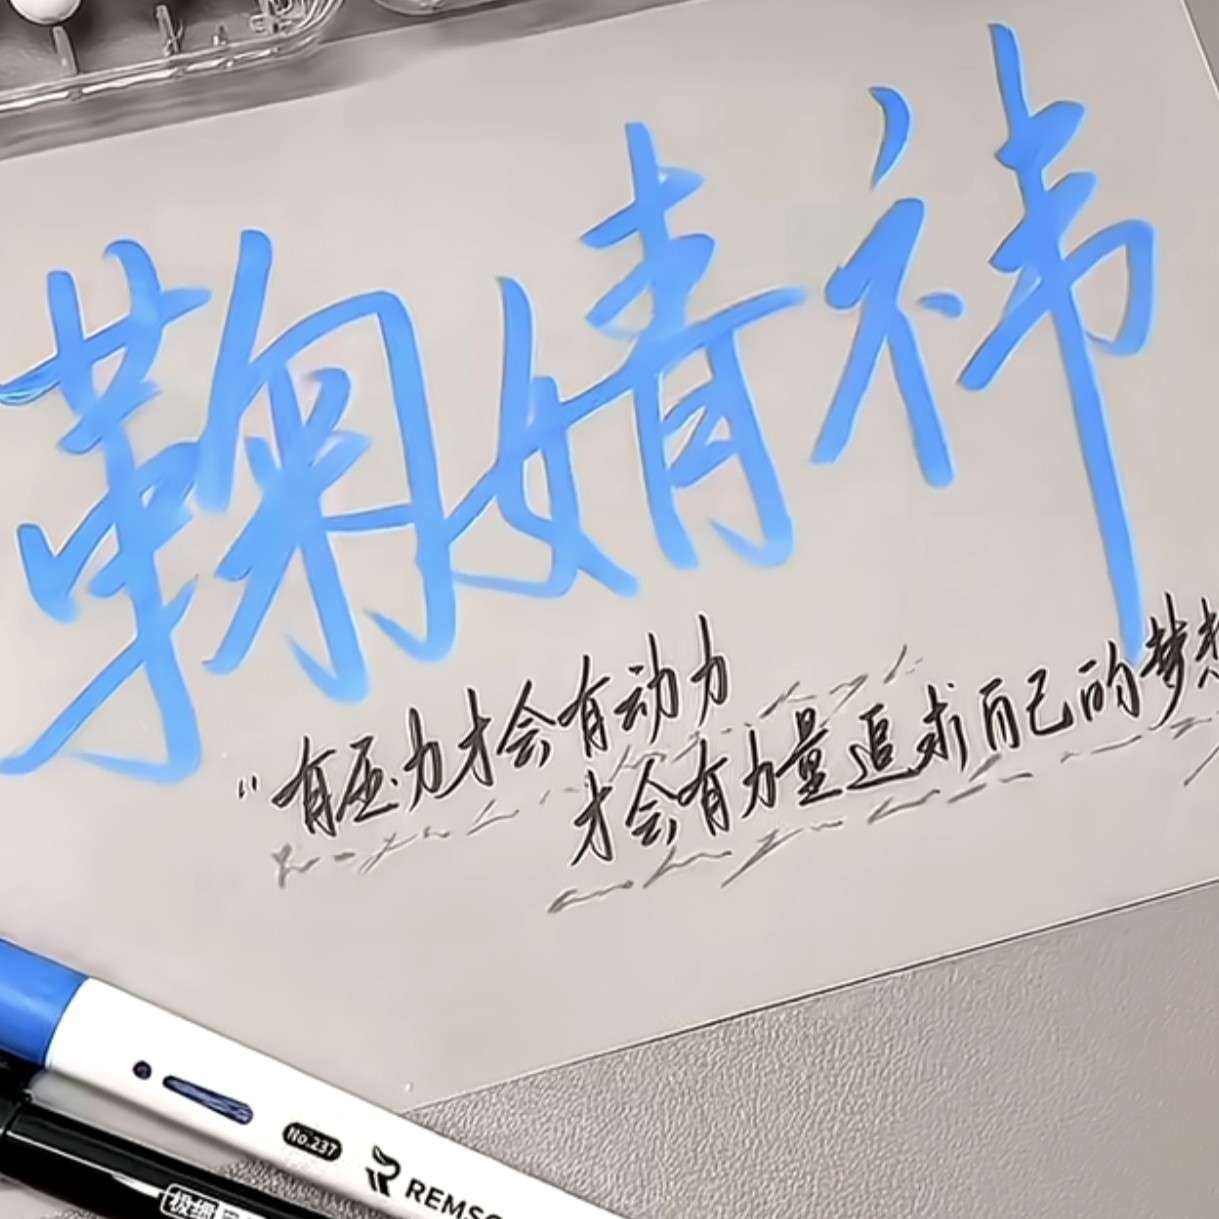 鞠婧祎
“有压力才会有动力
才会有力量追求自己的梦想
No.237
REMSC
极细